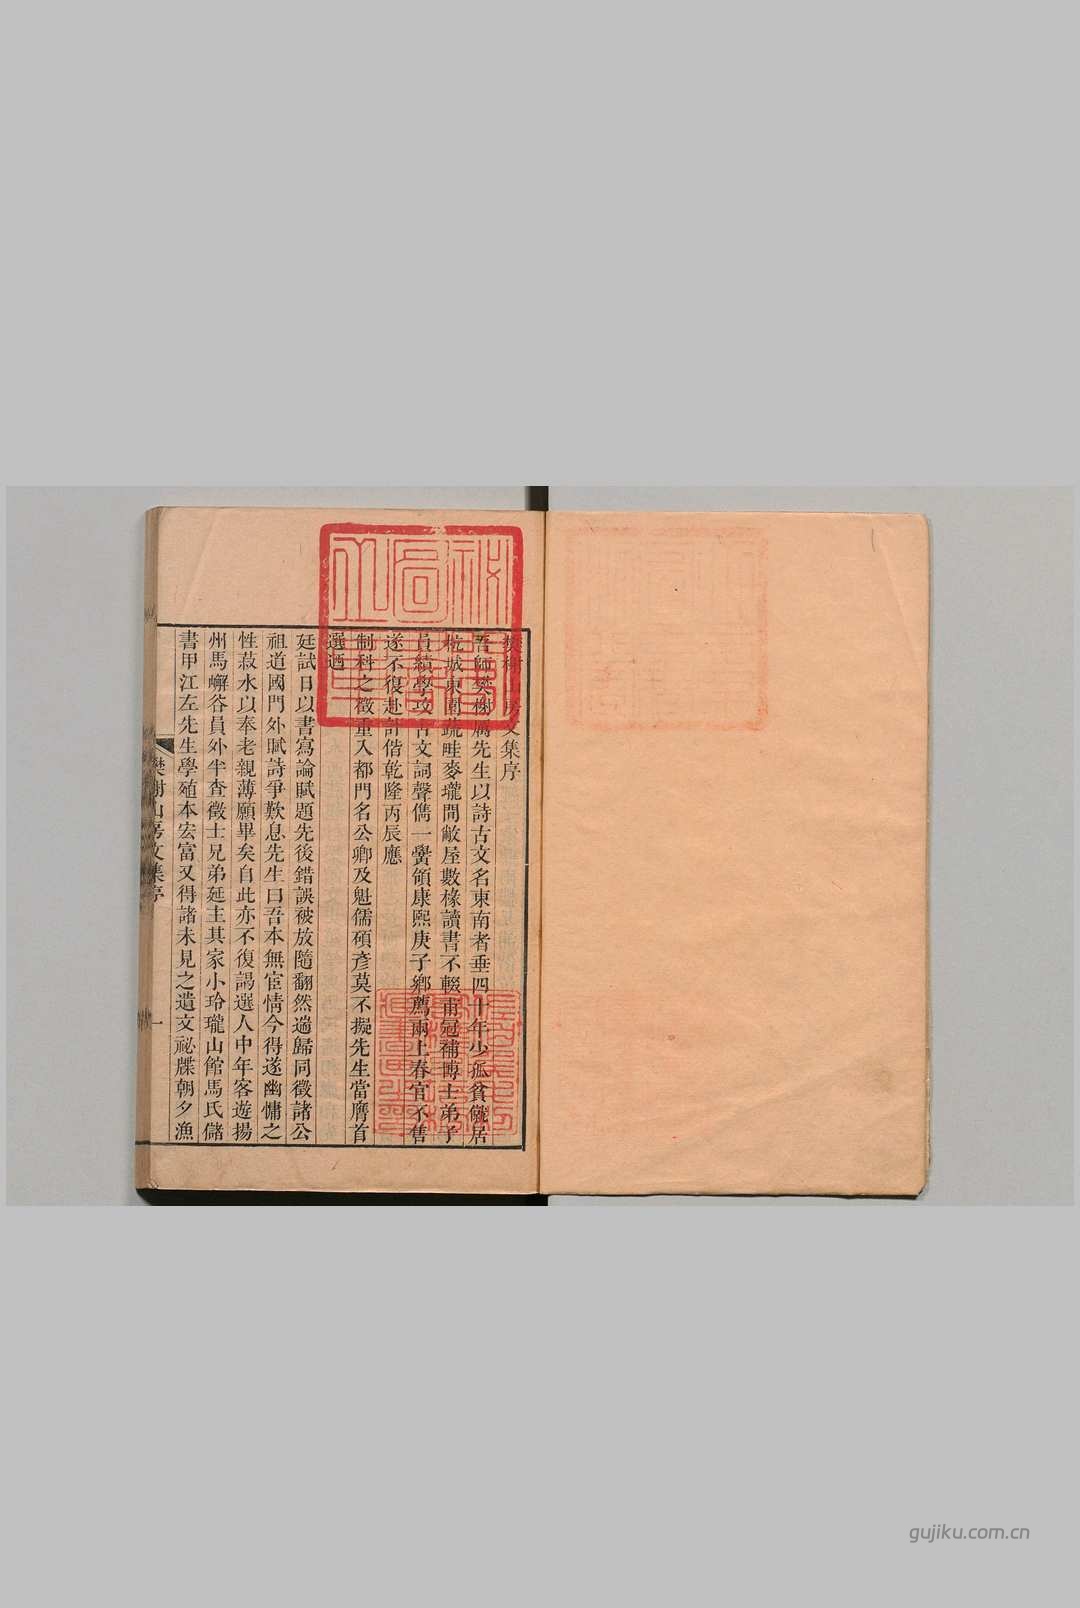 樊榭山房文集序
吾師樊榭厲先生以詩古文名東南者垂四十年少孤貧僦居
杭城東園蔬畦麥壠間敞屋數椽讀書不輟甫冠補博士弟子
員績學攻古文詞聲儁一黌領康熙庚子鄉薦兩上春官不售
遂不復赴計偕乾隆丙辰應
制科之徵重入都門名公卿及魁儒碩彥莫不擬先生當膺首
選迺
廷試日以書寫論賦題先後錯誤被放隨翻然遄歸同徵諸公
祖道國門外賦詩爭歎息先生曰吾本無宦情今得遂幽慵之
性菽水以奉老親薄願畢矣自此亦不復謁選人中年客遊揚
州馬嶰谷員外半查徵士兄弟延主其家小玲瓏山館馬氏儲
書甲江左先生學殖本宏富又得諸未見之遺文祕牒朝夕漁
樊榭山房文集序
一
gujiku.com.cn